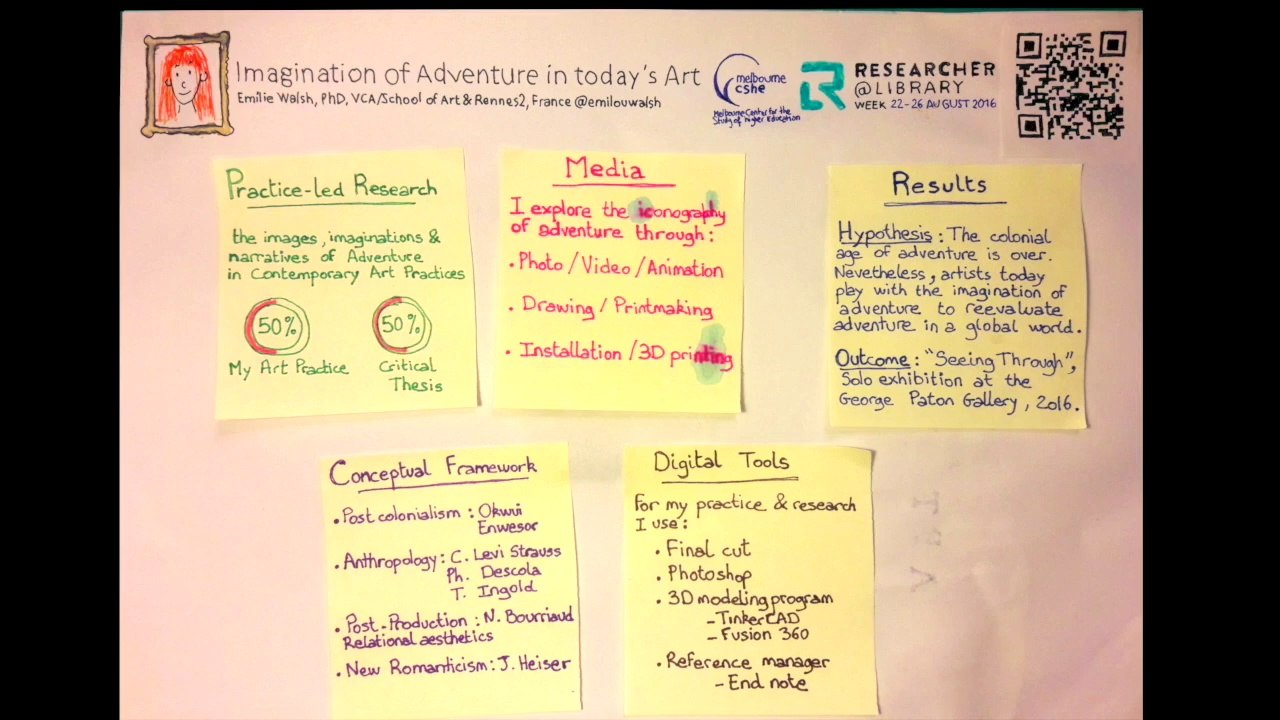 Imagination of Adventure in today's Art
Emilie Walsh, PhD, VCA/School of Art & Rennes2, France @emilouwalsh
melbourne
cshe
Melbourne Center for the
Study of Higher Education
RESEARCHER
@LIBRARY
WEEK 22-26 AUGUST 2016
Practice-led Research
the images, imaginations &
narratives of Adventure
in Contemporary Art Practices
50%
My Art Practice
50%
Critical
Thesis
Media
I explore the iconography
of adventure through:
• Photo / Video / Animation
• Drawing / Printmaking
• Installation / 3D printing
Results
Hypothesis: The colonial
age of adventure is over.
Nevertheless, artists today
play with the imagination of
adventure to reevaluate
adventure in a global world.
Outcome: "Seeing Through",
Solo exhibition at the
George Paton Gallery, 2016.
Conceptual Framework
• Post colonialism: Okwui
Enwesor
• Anthropology: C. Levi Strauss
Ph. Descola
T. Ingold
• Post-Production: N. Bourriaud
Relational aesthetics
• New Romanticism: J. Heiser
Digital Tools
For my practice & research
I use:
• Final cut
• Photoshop
• 3D modeling program
- TinkerCAD
- Fusion 360
• Reference manager
- End note